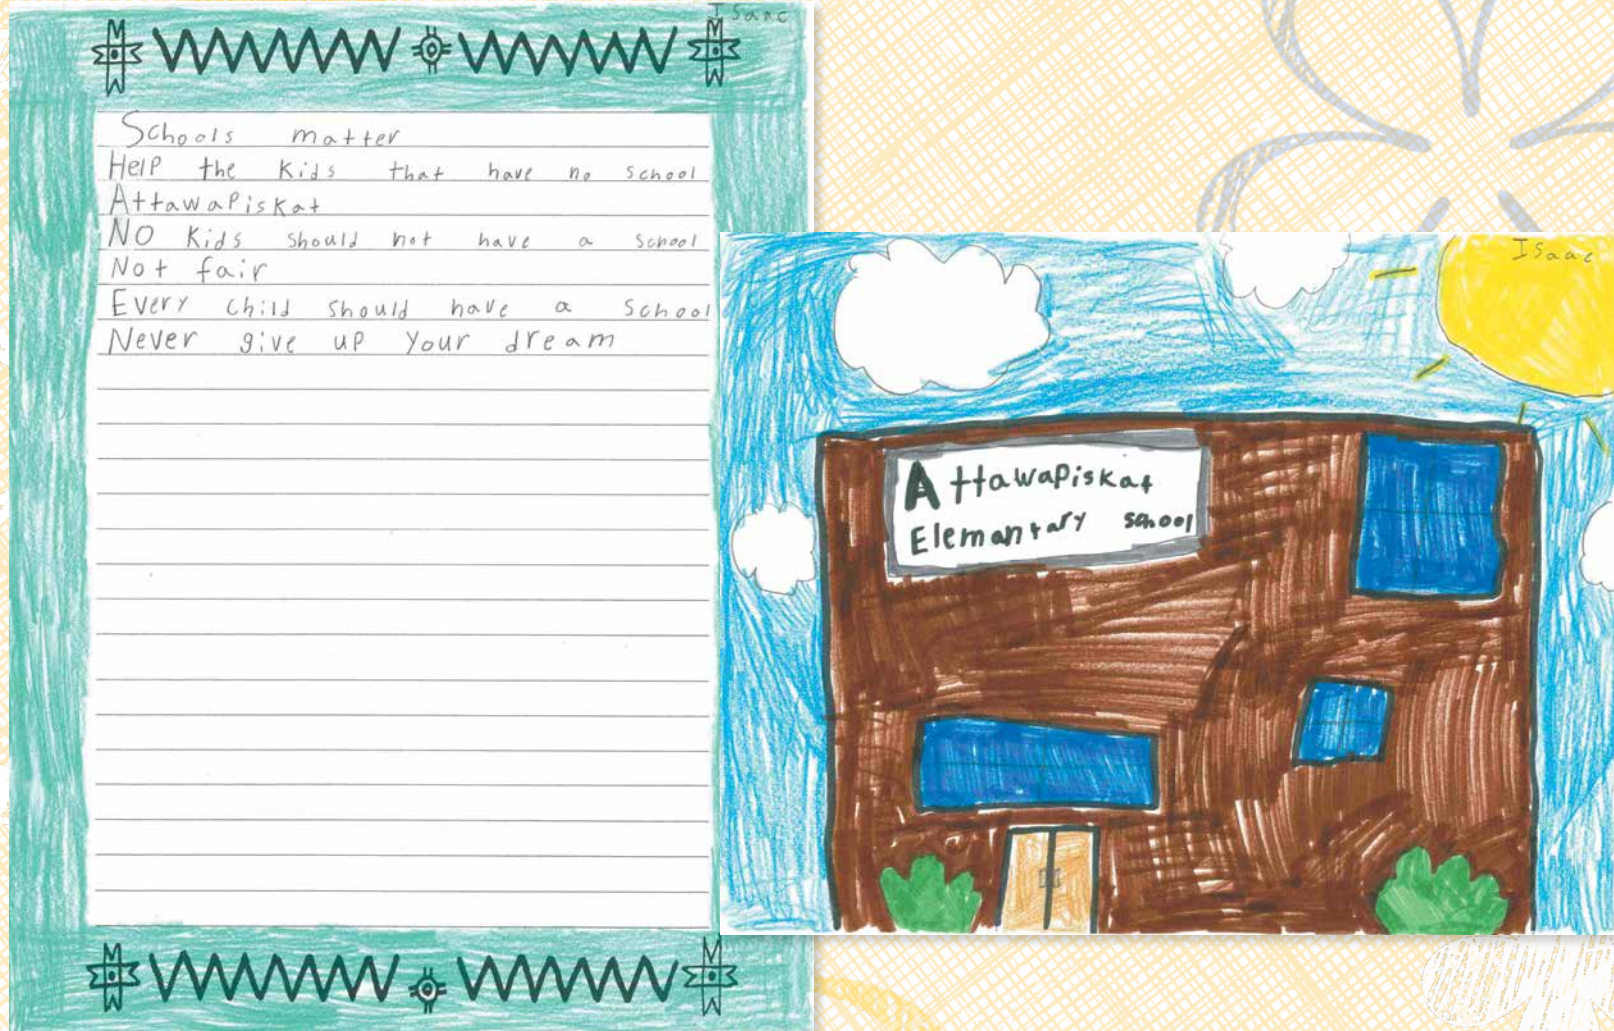 Isaac
Schools matter
Help the Kids that have no School
Attawapiskat
NO Kids should not have a School
Not fair
Every Child should have a School
Never give up your dream
Isaac
Attawapiskat
Elemantary school